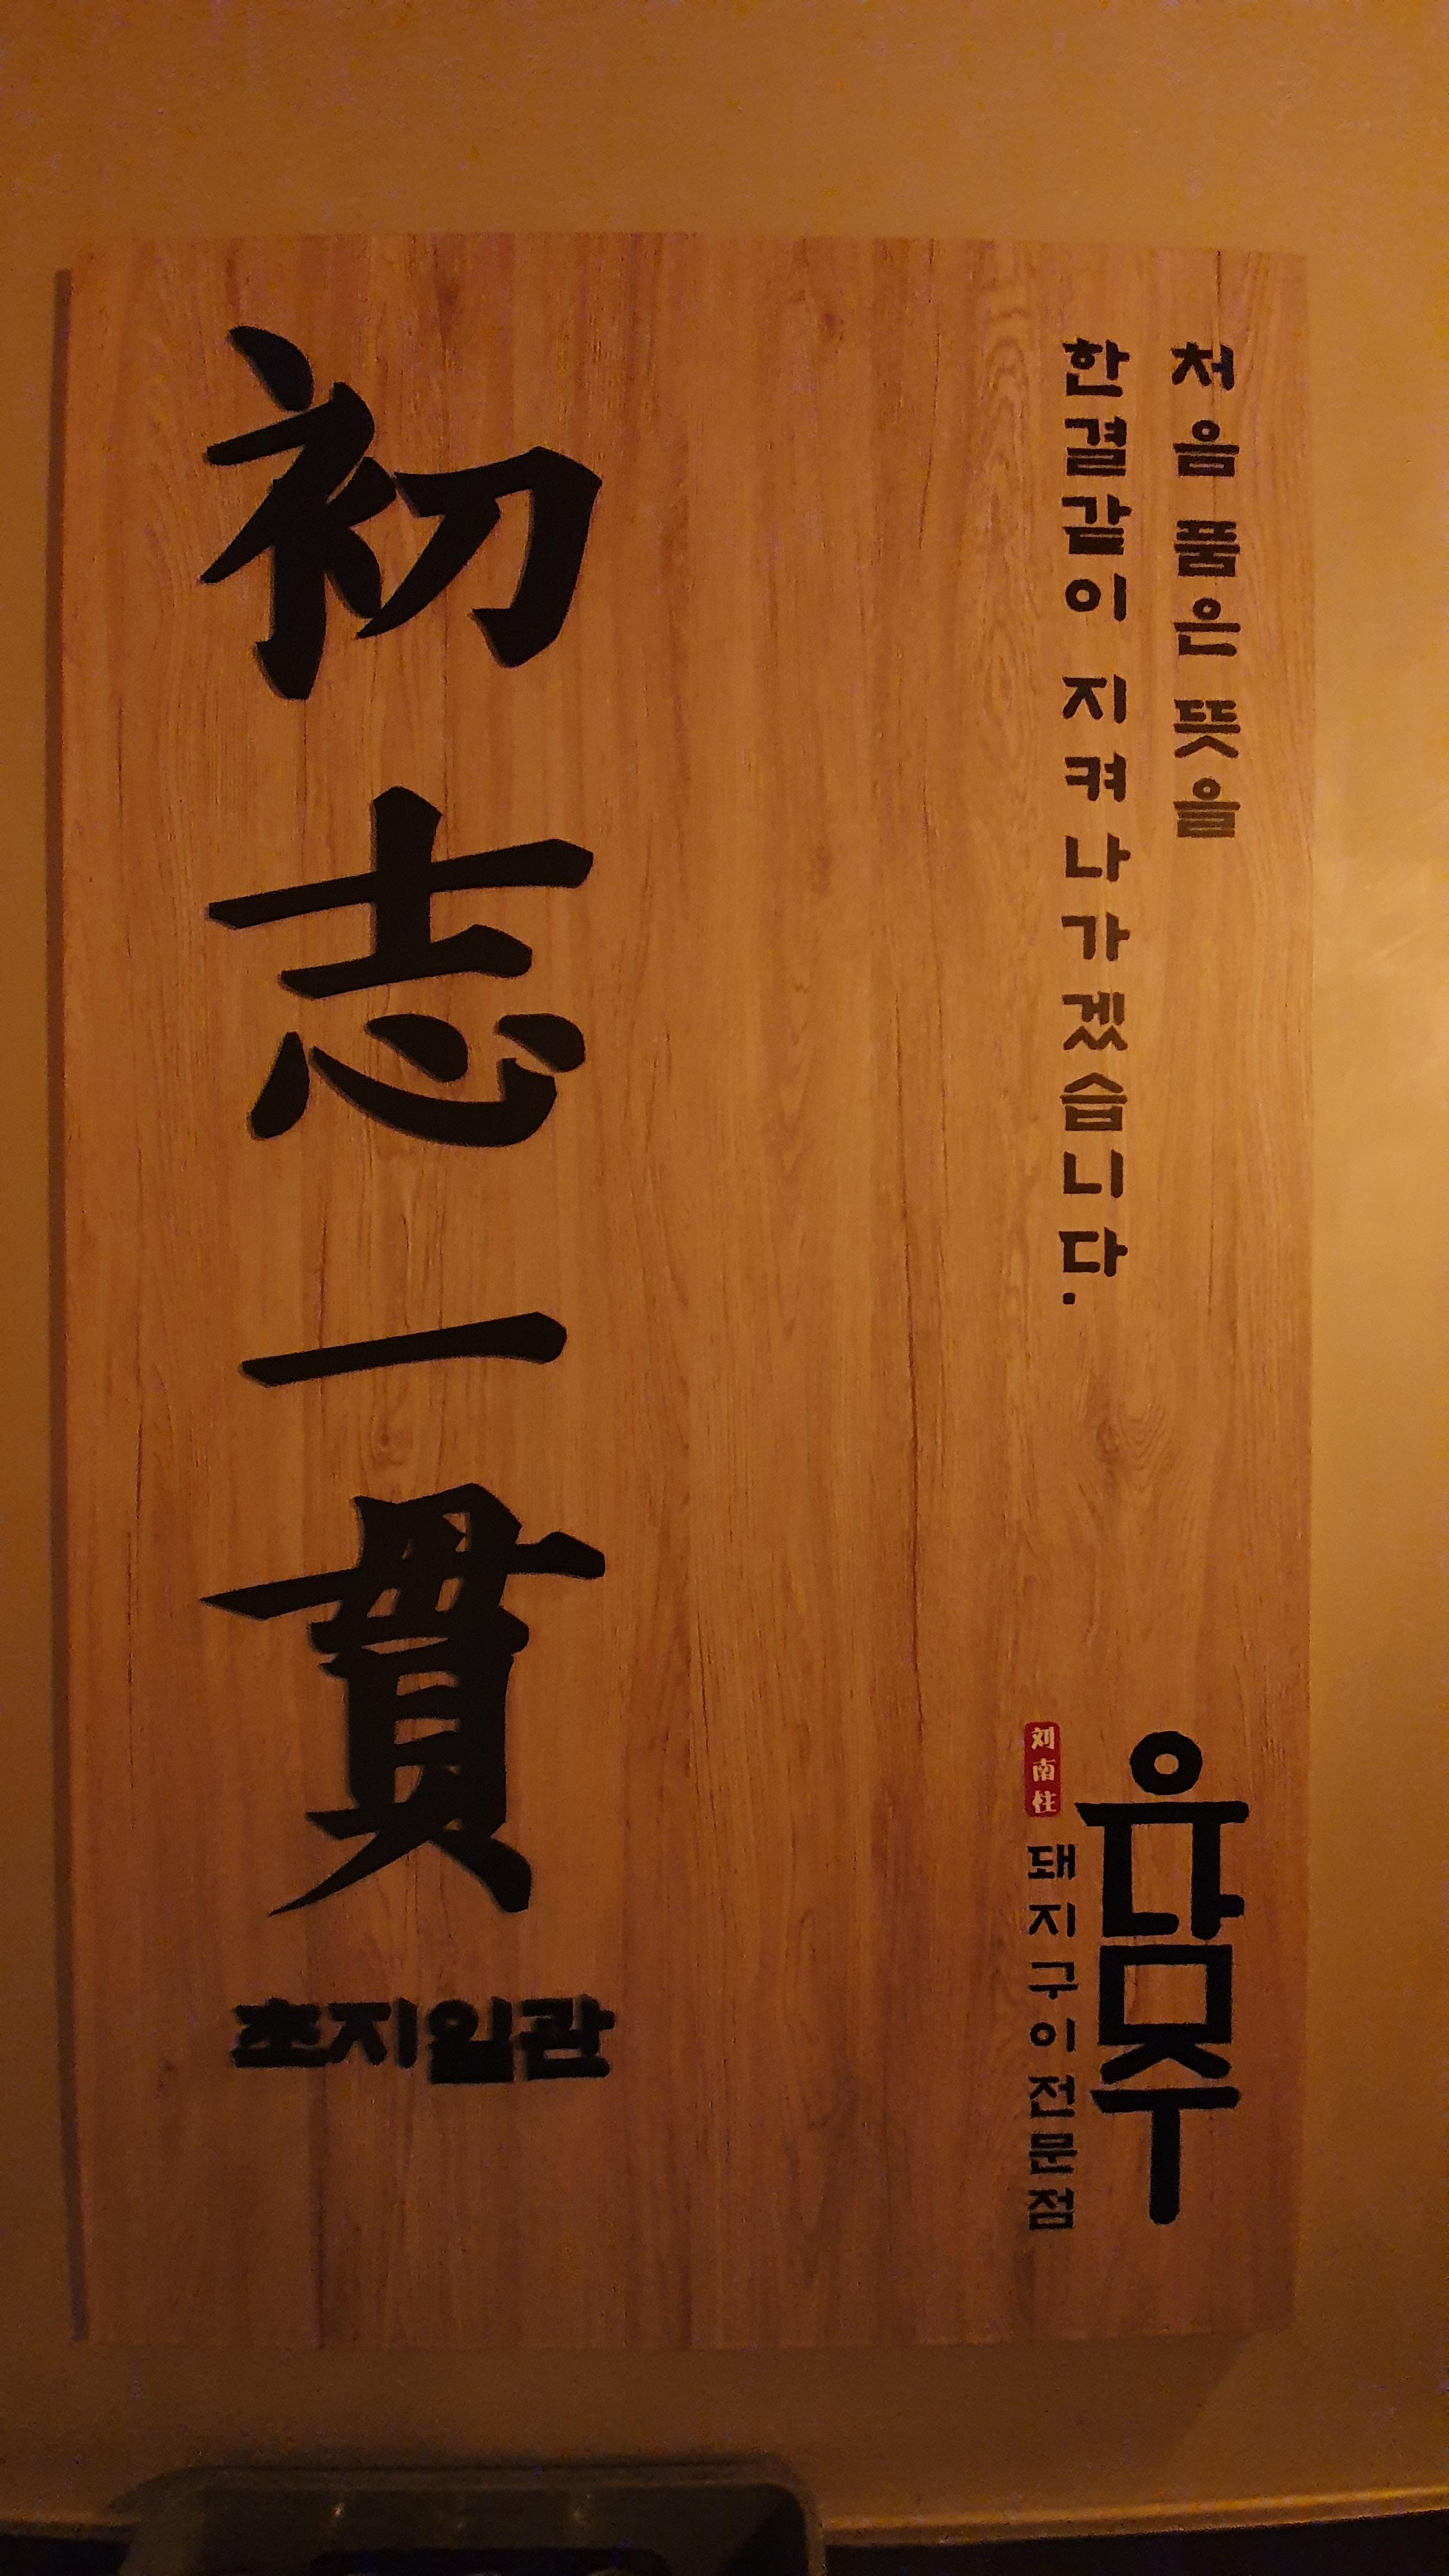 처음 품은 뜻을
한결같이 지켜나가겠습니다.
初志一貫
초지일관
유남주
刘南柱
돼지구이전문점